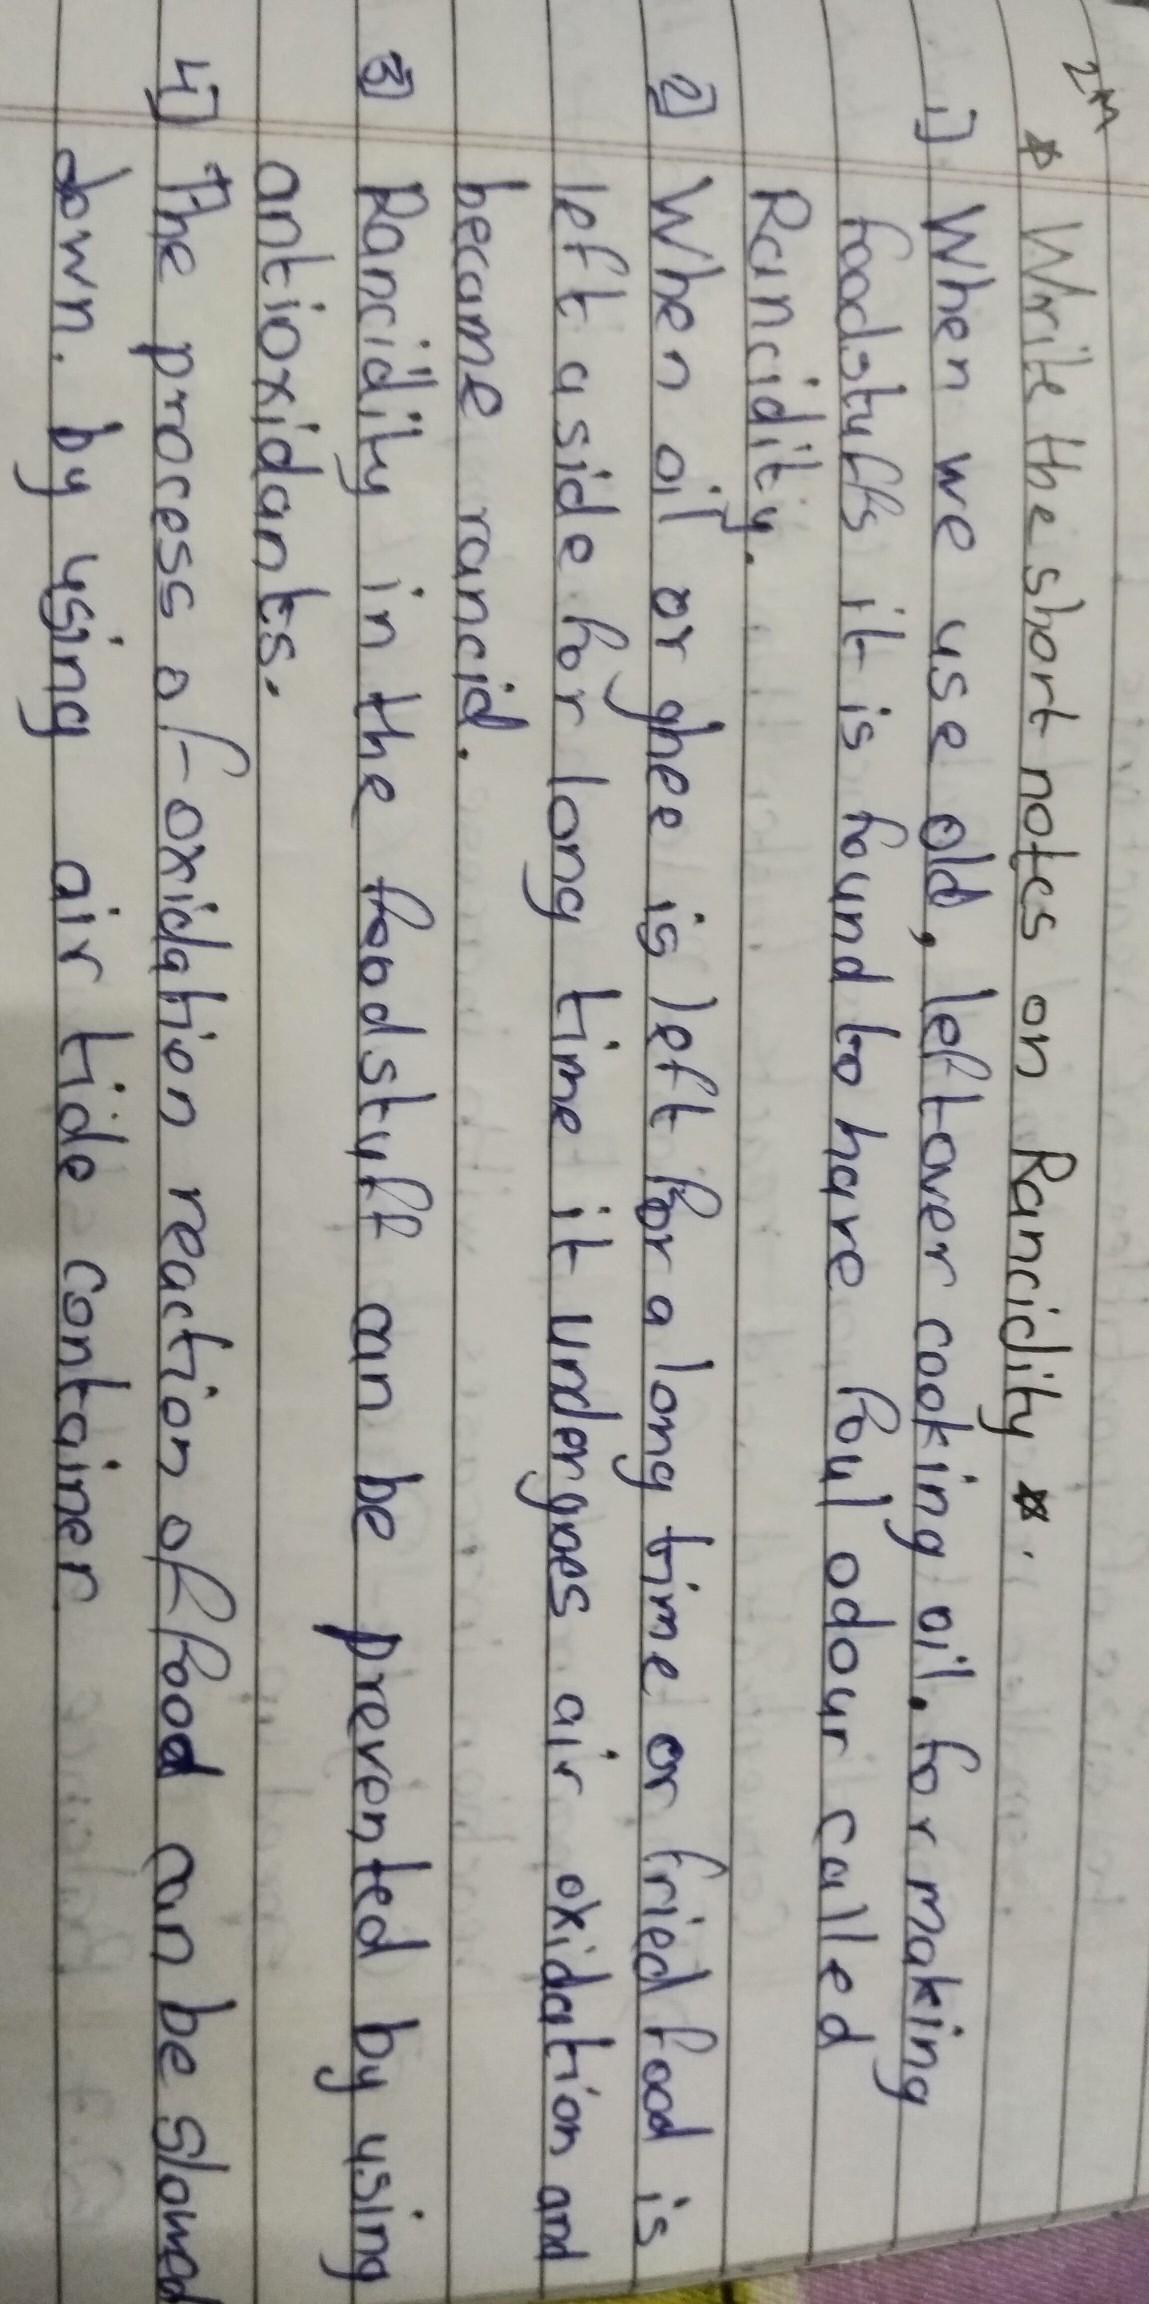 2M
* Write the short notes on Rancidity *.
1) When we use old, leftover cooking oil, for making
foodstuffs it is found to have foul odour called
Rancidity.
2) When oil or ghee is left for a long time or fried food is
left aside for long time it undergoes air oxidation and
became rancid.
3) Rancidity in the foodstuff can be prevented by using
antioxidants.
4) The process of oxidation reaction of food can be slowed
down. by using air tide container